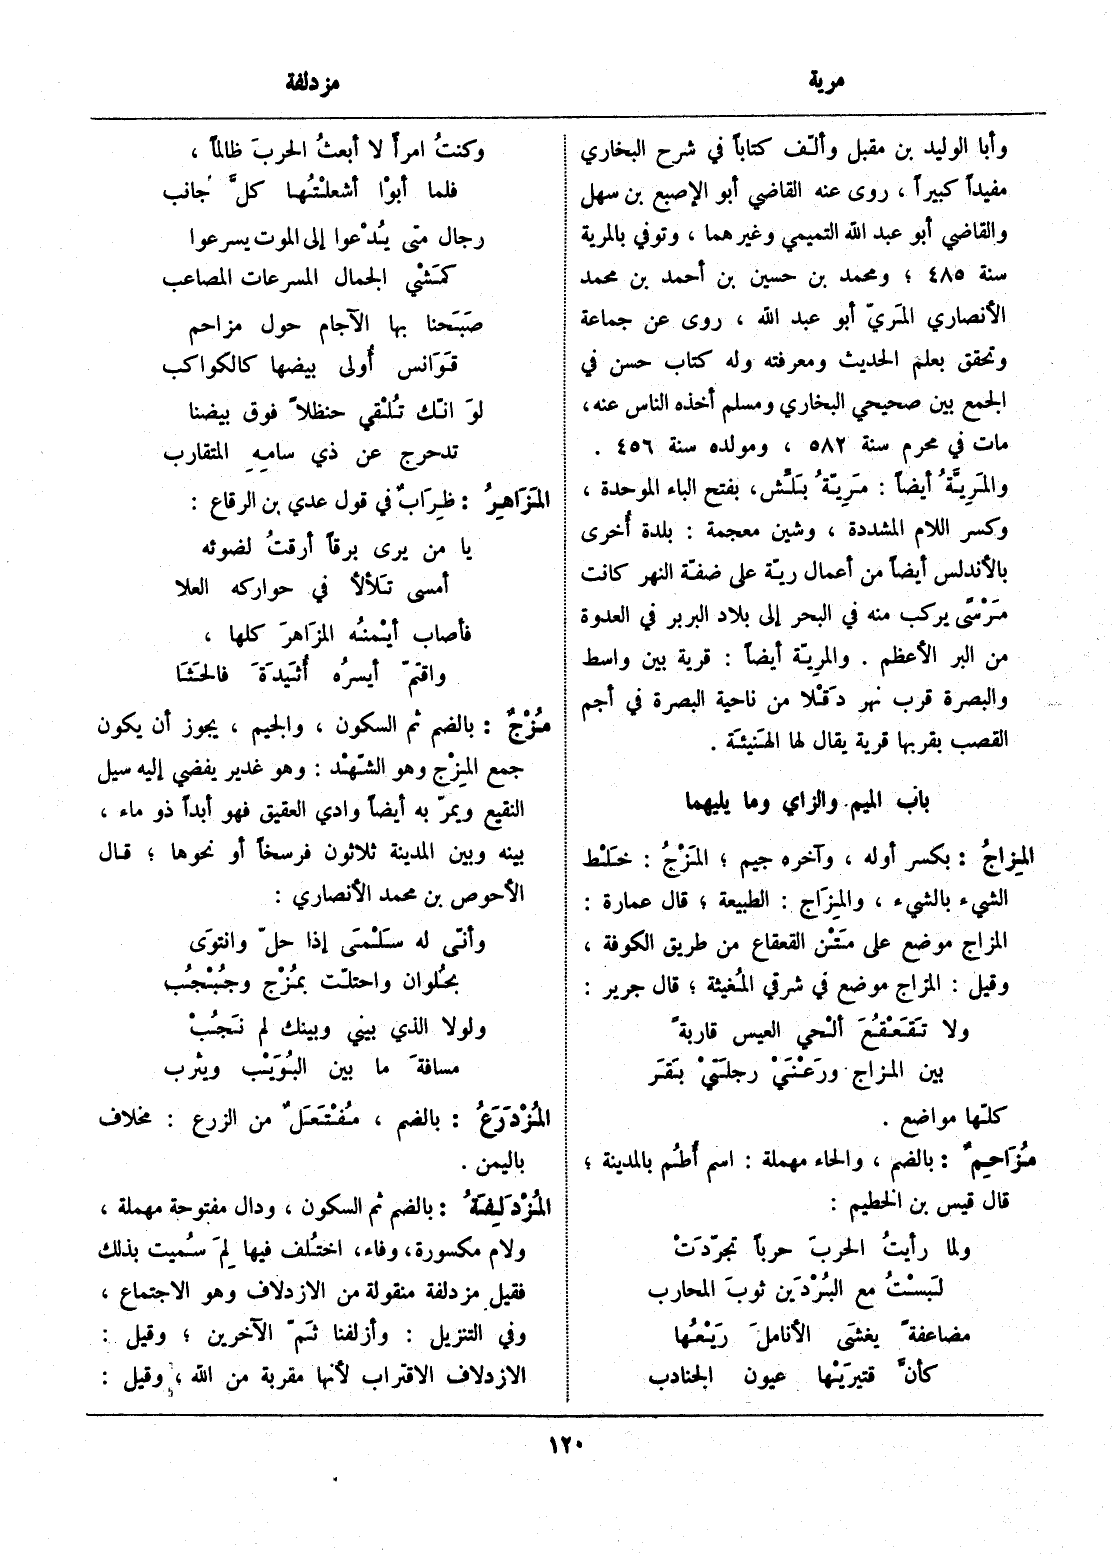 مرية
مزدلفة
وأبا الوليد بن مقبل وألّف كتاباً في شرح البخاري
مفيداً كبيراً ، روى عنه القاضي أبو الإصبع بن سهل
والقاضي أبو عبد الله التميمي وغيرهما ، وتوفي بالمرية
سنة ٤٨٥ ؛ ومحمد بن حسين بن أحمد بن محمد
الأنصاري المَريّ أبو عبد الله ، روى عن جماعة
وتحقق بعلم الحديث ومعرفته وله كتاب حسن في
الجمع بين صحيحي البخاري ومسلم أخذه الناس عنه،
مات في محرم سنة ٥٨٢ ، ومولده سنة ٤٥٦ .
والمَرِيَّةُ أيضاً : مَرِيّةُ بَلِّش، بفتح الباء الموحدة ،
وكسر اللام المشددة ، وشين معجمة : بلدة أُخرى
بالأندلس أيضاً من أعمال ريّة على ضفّة النهر كانت
مَرْسًى يركب منه في البحر إلى بلاد البربر في العدوة
من البر الأعظم . والمرِيّة أيضاً : قرية بين واسط
والبصرة قرب نهر دَقْلا من ناحية البصرة في أجم
القصب بقربها قرية يقال لها الهَنِيئة .
باب الميم والزاي وما يليهما
المِزاجُ : بكسر أوله ، وآخره جيم ؛ المَزْجُ : خَلْط
الشيء بالشيء ، والمِزَاج : الطبيعة ؛ قال عمارة :
المزاج موضع على مَتْن القعقاع من طريق الكوفة ،
وقيل : المزاج موضع في شرقي المُغيثة ؛ قال جرير :
ولا تَقَعْقُعَ ألْحي العيس قاربةً
بين المزاج ورَعْنَيْ رجلَتَيْ بَقَرَ
كلّها مواضع .
مُزَاحِمٌ : بالضم ، والحاء مهملة : اسم أُطُم بالمدينة ؛
قال قيس بن الخطيم :
ولما رأيتُ الحربَ حرباً تجرّدَتْ
لَبَسْتُ مع البُرْدَين ثوبَ المحارب
مضاعفةً يغشَى الأناملَ رَيْعُها
كأنَّ قتيرَيْها عيون الجنادب
وكنتُ امرأً لا أبعثُ الحربَ ظالماً ،
فلما أبوْا أشعلتُها كلَّ جانب
رجال متى يُدْعوا إلى الموت يسرعوا
كمَشْي الجمال المسرعات المصاعب
صَبَحنا بها الآجام حول مزاحم
قَوَانس أُولى بيضها كالكواكب
لوَ انّك تُلْقي حنظلاً فوق بيضنا
تدحرج عن ذي سامِهِ المتقارب
المَزَاهِيرُ : ظِرَابٌ في قول عدي بن الرقاع :
يا من يرى برقاً أرقتُ لضوئه
أمسى تَلألأَ في حواركه العلا
فأصاب أيْمنُه المزَاهرَ كلها ،
واقتمّ أيسرُه أُثَيدَةَ فالحَثَا
مُزْجٌ : بالضم ثم السكون ، والجيم ، يجوز أن يكون
جمع المِزْج وهو الشّهْد : وهو غدير يفضي إليه سيل
النقيع ويمرّ به أيضاً وادي العقيق فهو أبداً ذو ماء ،
بينه وبين المدينة ثلاثون فرسخاً أو نحوها ؛ قال
الأحوص بن محمد الأنصاري :
وأنّى له سَلْمَى إذا حلّ وانتوَى
بحُلوان واحتلّت بمُزْج وجُبْجُب
ولولا الذي بيني وبينك لم نَجُبْ
مسافةَ ما بين البُوَيْب ويثرب
المُزْدَرَعُ : بالضم ، مُفْتَعَلٌ من الزرع : مخلاف
باليمن .
المُزْدَلِفَةُ : بالضم ثم السكون ، ودال مفتوحة مهملة ،
ولام مكسورة، وفاء، اختُلف فيها لِمَ سُميت بذلك
فقيل مزدلفة منقولة من الازدلاف وهو الاجتماع ،
وفي التنزيل : وأزلفنا ثَمّ الآخرين ؛ وقيل :
الازدلاف الاقتراب لأنها مقربة من الله ، وقيل :
١٢٠